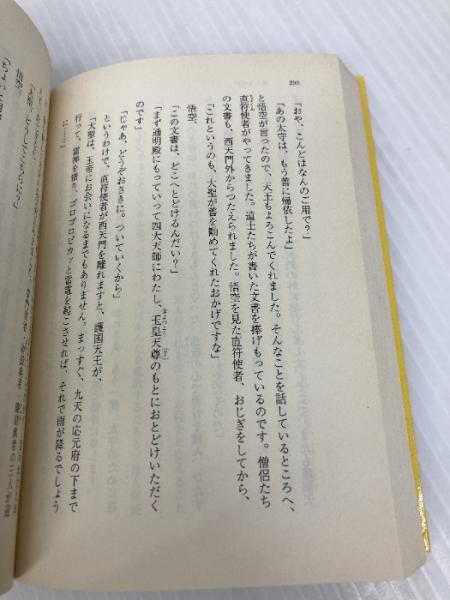 290
「おや、こんどはなんのご用で？」
「あの太守は、もう善に帰依したよ」
と悟空が言ったので、天王もよろこんでくれました。そんなことを話しているところへ、
直符使者がやってきました。道士たちが書いた文書を捧げもっているのです。僧侶たち
の文書も、西天門外からつたえられました。悟空を見た直符使者、おじぎをしてから、
「これというのも、大聖が善を勧めてくれたおかげですな」
悟空、
「この文書は、どこへとどけるんだい？」
「まず通明殿にもっていって四大天師にわたし、玉皇天尊のもとにおとどけいただく
のです」
「じゃあ、どうぞおさきに。ついていくから」
というわけで、直符使者が西天門を離れますと、護国天王が、
「大聖は、玉帝にお会いになるまでもありません。まっすぐ、九天の応元府の下まで
行って、雷神を借り、ゴロゴロピカッと雷電を起こさせれば、それで雨が降るでしょう